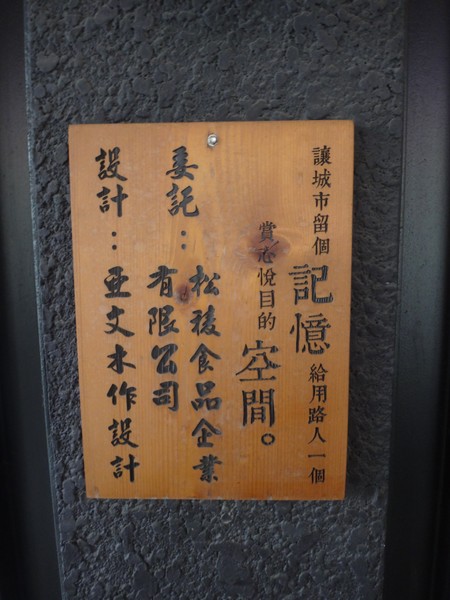 讓城市留個記憶給用路人一個
賞心悅目的空間。
委託：松稜食品企業
有限公司
設計：亚文木作設計